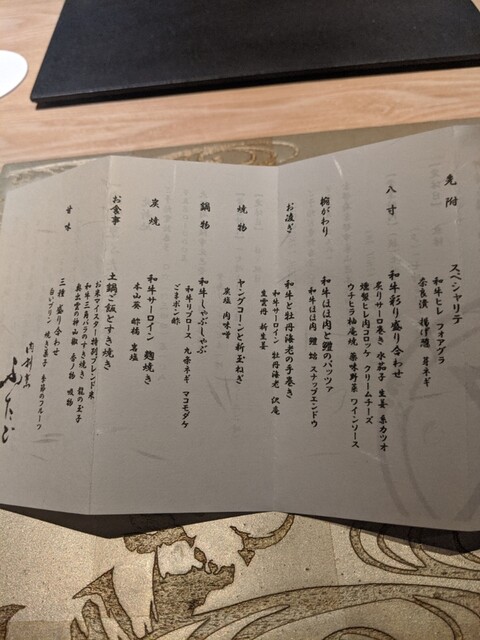 先附
スペシャリテ
和牛ヒレ フォアグラ
奈良漬 揚げ麺 芽ネギ
八寸
和牛彩り盛り合わせ
炙りサーロ巻き 水茄子 生姜 糸カツオ
燻製ヒレ肉コロッケ クリームチーズ
ウチヒラ柚庵焼 薬味野菜 ワインソース
椀がわり
和牛ほほ肉と鱧のパッツァ
和牛ほほ肉 鱧 蛤 スナップエンドウ
お凌ぎ
和牛と牡丹海老の手巻き
和牛サーロイン 牡丹海老 沢庵
生雲丹 新生姜
焼物
ヤングコーンと新玉ねぎ
炭塩 肉味噌
鍋物
和牛しゃぶしゃぶ
和牛リブロース 九条ネギ マコモダケ
ごまポン酢
炭焼
和牛サーロイン 麹焼き
本山葵 酢橘 岩塩
お食事
土鍋ご飯とすき焼き
お米マイスター特別ブレンド米
和牛三角バラのすき焼き 龍の玉子
奥出雲の神山椒 香ノ物 吸物
甘味
三種 盛り合わせ
白いプリン 焼き菓子 季節のフルーツ
肉料亭
ふたご